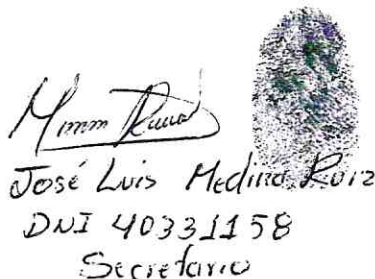 José Luis Medina Ruiz
DNI 40331158
Secretario